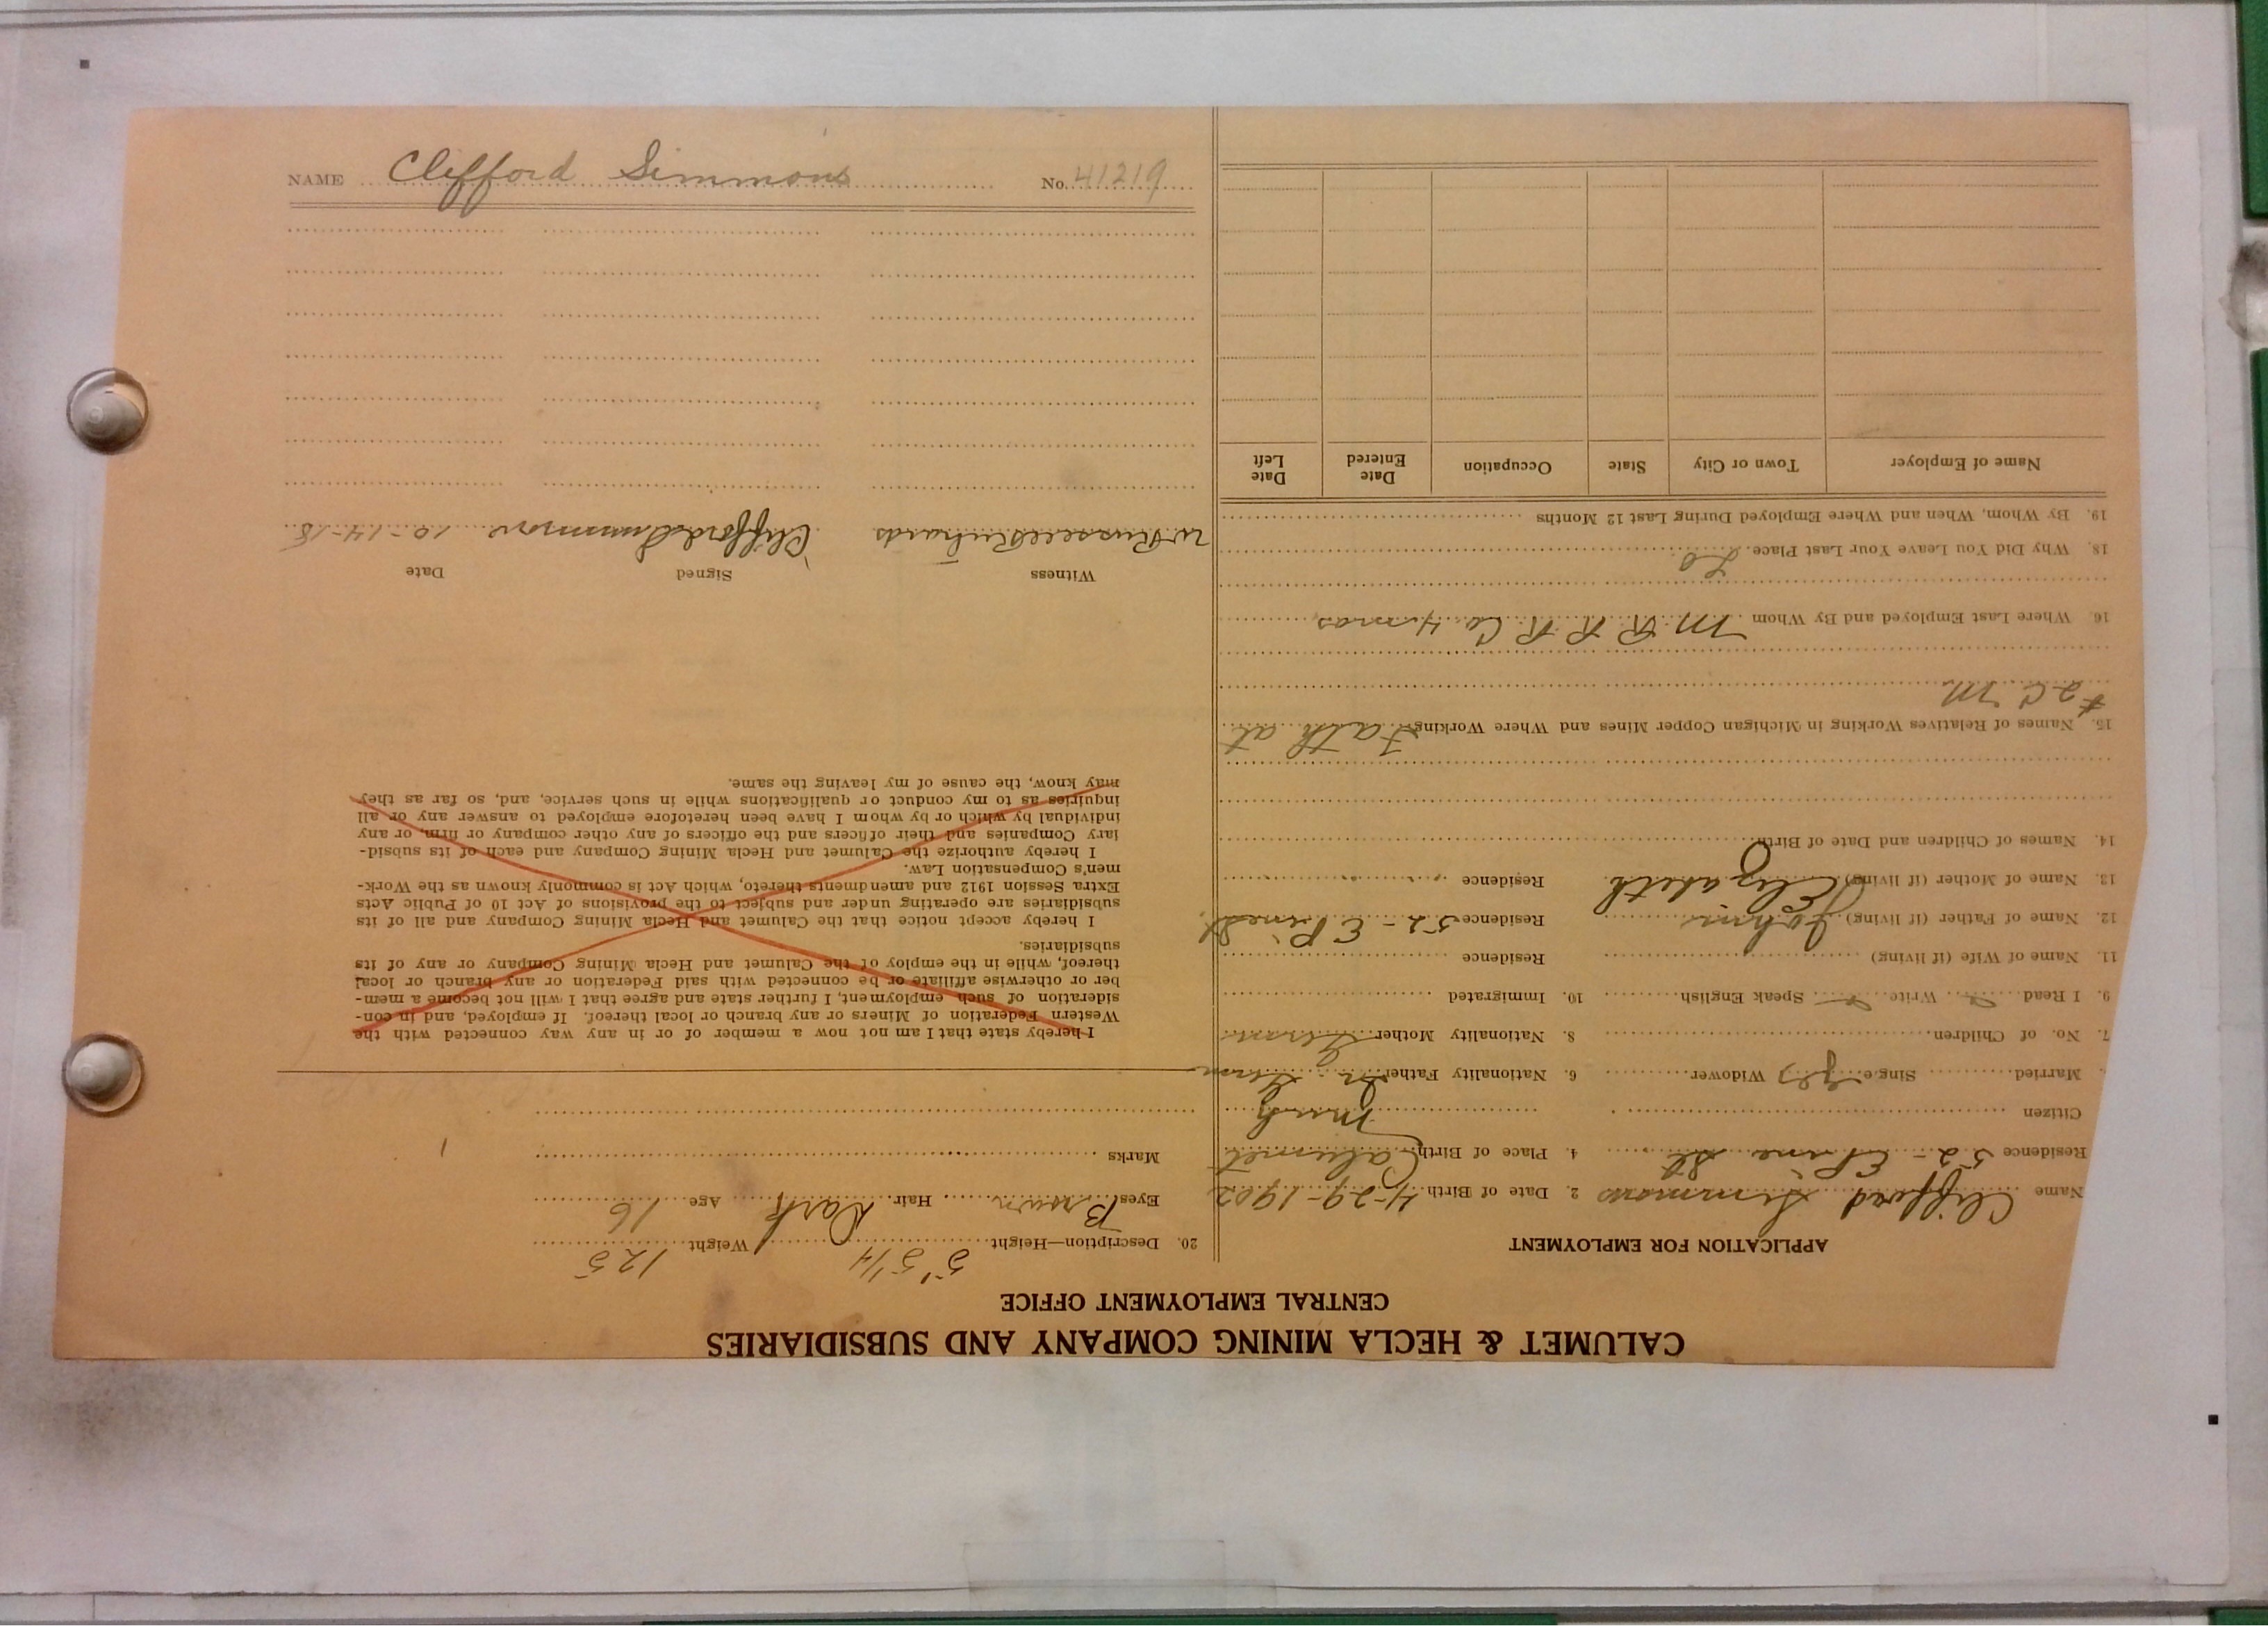 CALUMET & HECLA MINING COMPANY AND SUBSIDIARIES
CENTRAL EMPLOYMENT OFFICE
APPLICATION FOR EMPLOYMENT
Name Clifford Simmons 2. Date of Birth 4-29-1902
Residence 52 - E Pine St 4. Place of Birth Calumet
Citizen Mich
Married Single yes Widower 6. Nationality Father Germ
7. No. of Children 8. Nationality Mother Germ
9. I Read Write Speak English 10. Immigrated
11. Name of Wife (if living) Residence
12. Name of Father (if living) John Residence 52 - E Pine St
13. Name of Mother (if living) Elizabeth Residence
14. Names of Children and Date of Birth
15. Names of Relatives Working in Michigan Copper Mines and Where Working Fath at
#2 C M
16. Where Last Employed and By Whom M R R R Co 4 mos
18. Why Did You Leave Your Last Place
19. By Whom, When and Where Employed During Last 12 Months
Name of Employer Town or City State Occupation Date Entered Date Left
20. Description—Height 5' 5 1/4 Weight 125
Eyes Brown Hair Dark Age 16
Marks
I hereby state that I am not now a member of or in any way connected with the
Western Federation of Miners or any branch or local thereof. If employed, and in con-
sideration of such employment, I further state and agree that I will not become a mem-
ber or otherwise affiliate or be connected with said Federation or any branch or local
thereof, while in the employ of the Calumet and Hecla Mining Company or any of its
subsidiaries.
I hereby accept notice that the Calumet and Hecla Mining Company and all of its
subsidiaries are operating under and subject to the provisions of Act 10 of Public Acts
Extra Session 1912 and amendments thereto, which Act is commonly known as the Work-
men's Compensation Law.
I hereby authorize the Calumet and Hecla Mining Company and each of its subsid-
iary Companies and their officers and the officers of any other company or firm, or any
individual by which or by whom I have been heretofore employed to answer any or all
inquiries as to my conduct or qualifications while in such service, and, so far as they
may know, the cause of my leaving the same.
Witness Signed Date
W Russell Richards Clifford Simmons 10-14-18
NAME Clifford Simmons No. 41219